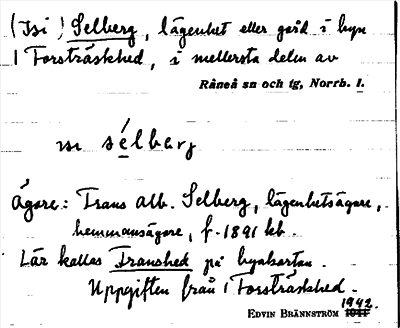 (I si) Selberg, lägenhet eller gård i byn
1 Forsträskhed, i mellersta delen av
Råneå sn och tg, Norrb. l.
sélberj
Ägare: Frans alb. Selberg, lägenhetsägare,
hemmansägare, f. 1891 hb.
Lär kallas Franshed på byakartan.
Uppgiften från 1 Forsträskhed.
1942.
EDVIN BRÄNNSTRÖM 1941